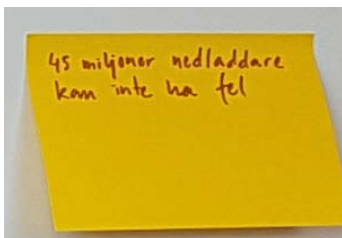 45 miljoner nedladdare
kan inte ha fel